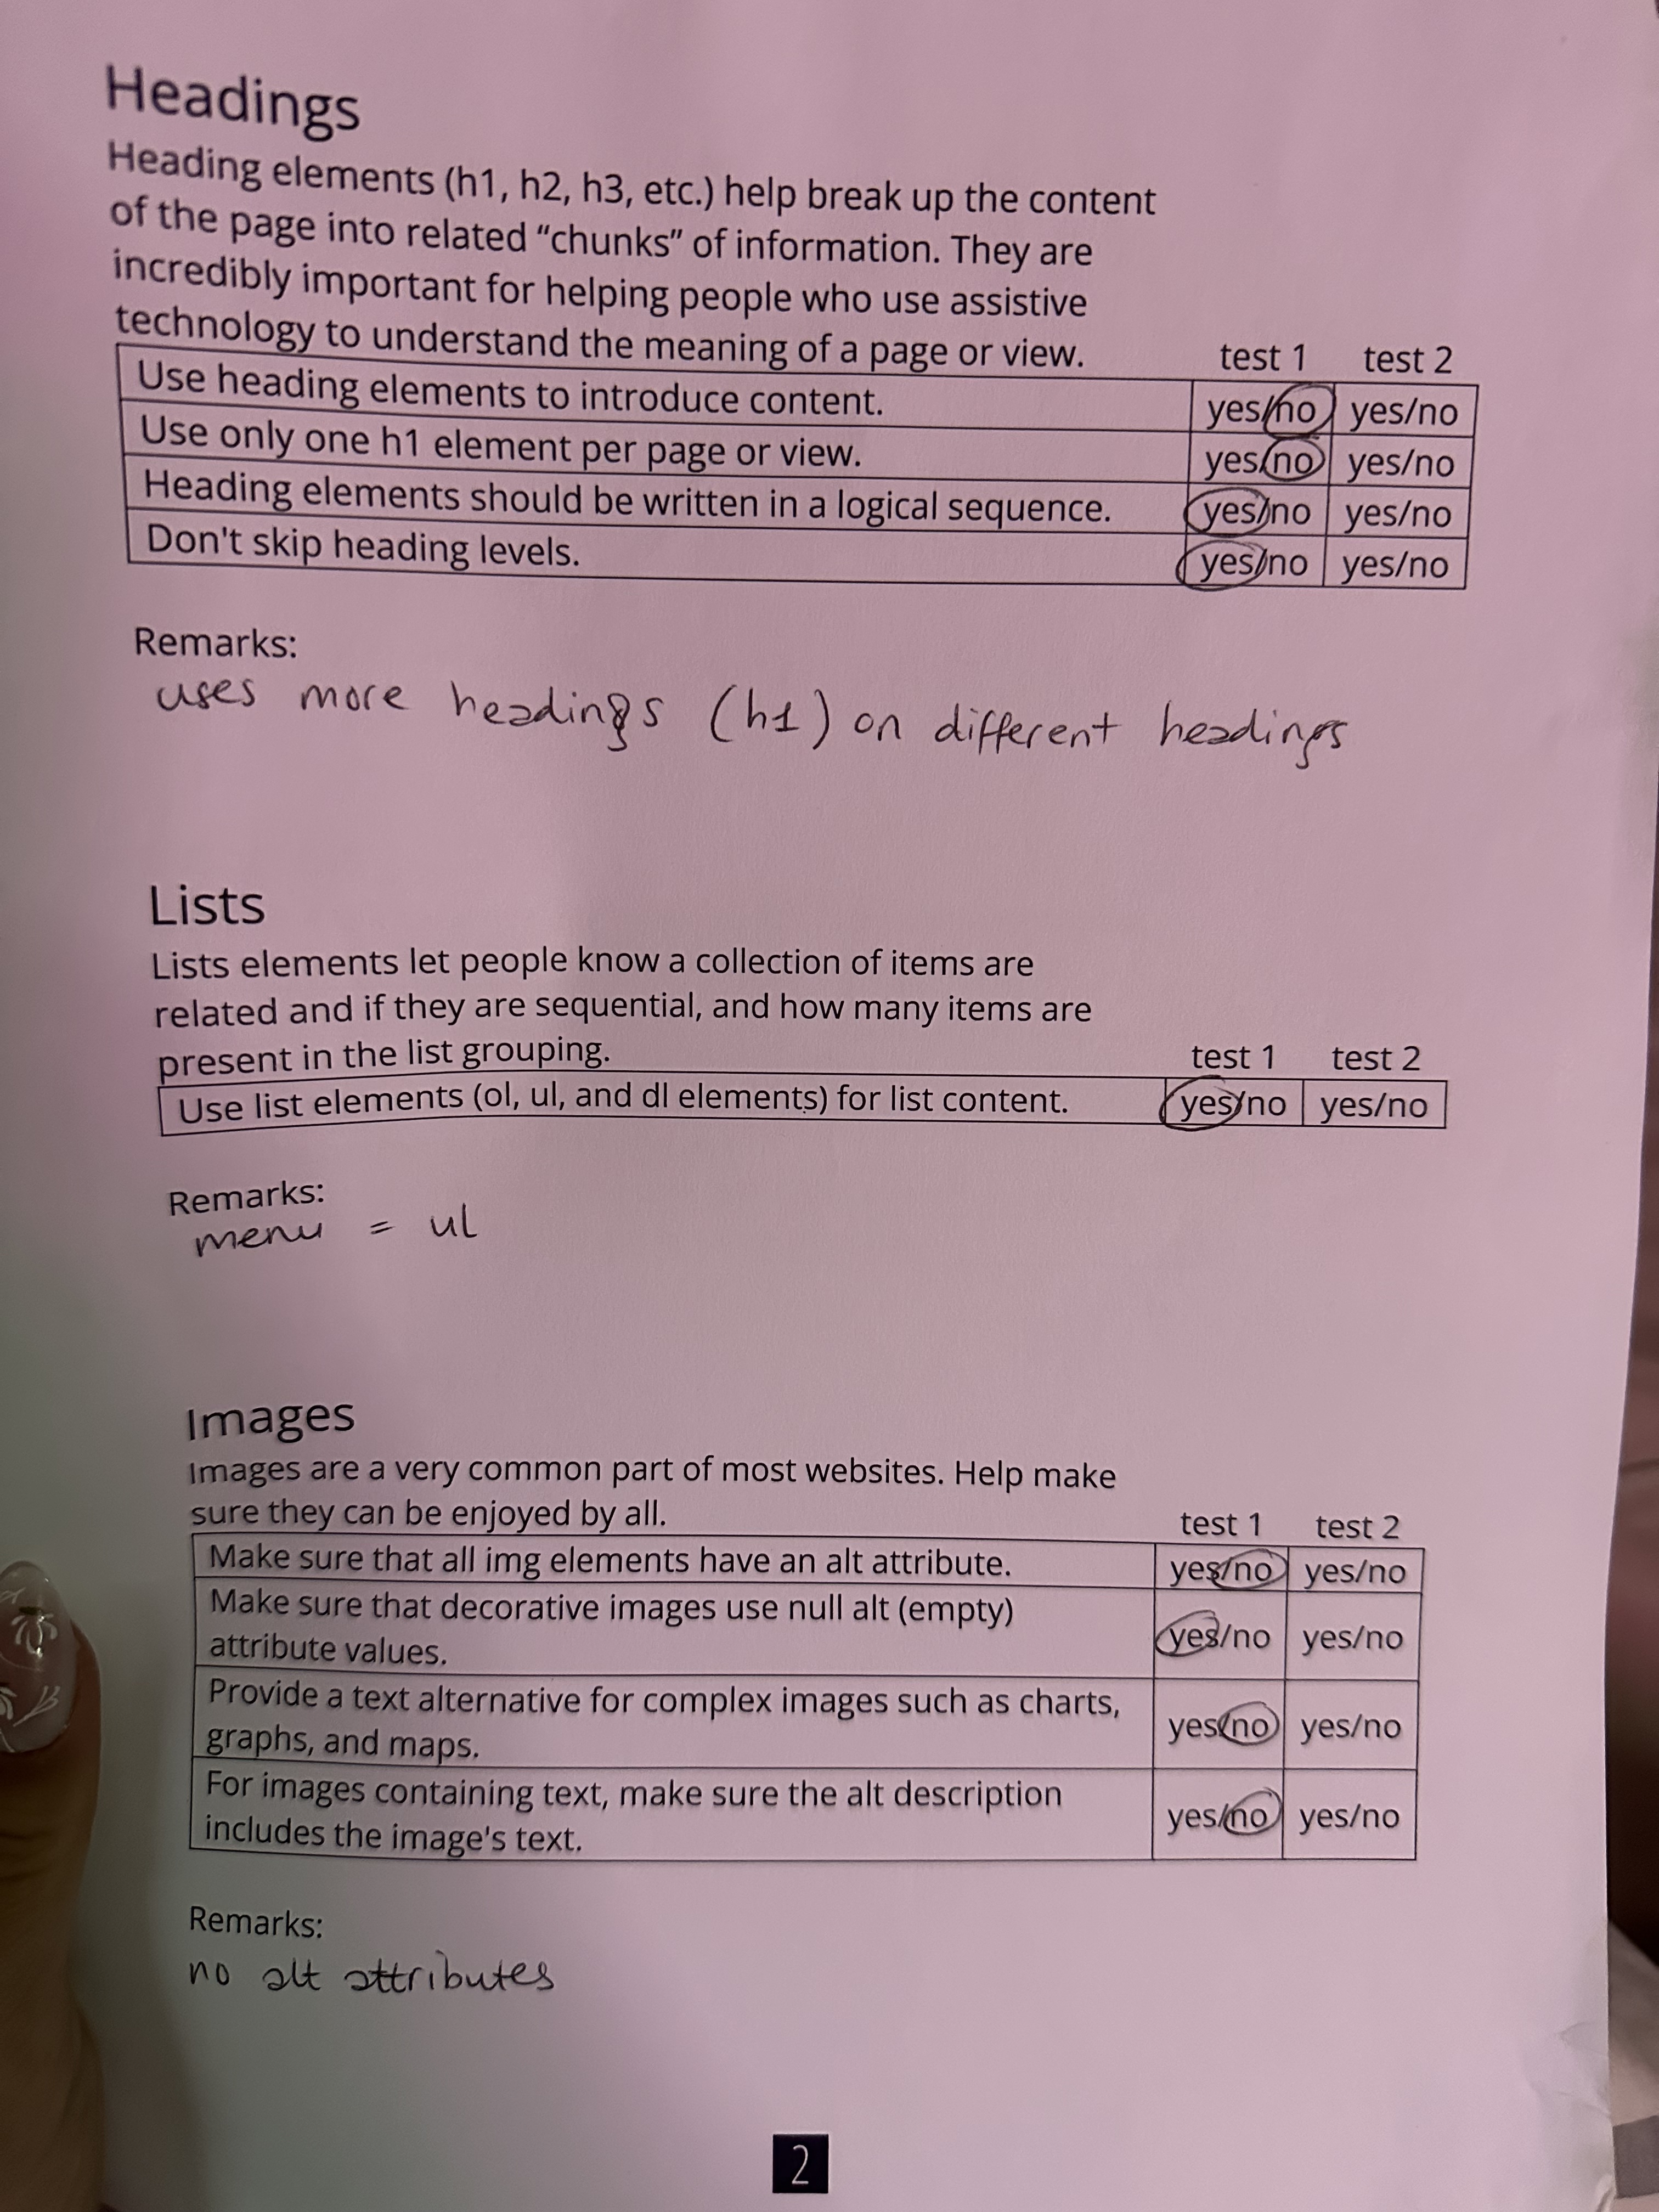 Headings
Heading elements (h1, h2, h3, etc.) help break up the content
of the page into related “chunks” of information. They are
incredibly important for helping people who use assistive
technology to understand the meaning of a page or view. test 1 test 2
Use heading elements to introduce content. yes/no yes/no
Use only one h1 element per page or view. yes/no yes/no
Heading elements should be written in a logical sequence. yes/no yes/no
Don't skip heading levels. yes/no yes/no
Remarks:
uses more headings (h1) on different headings
Lists
Lists elements let people know a collection of items are
related and if they are sequential, and how many items are
present in the list grouping. test 1 test 2
Use list elements (ol, ul, and dl elements) for list content. yes/no yes/no
Remarks:
menu = ul
Images
Images are a very common part of most websites. Help make
sure they can be enjoyed by all. test 1 test 2
Make sure that all img elements have an alt attribute. yes/no yes/no
Make sure that decorative images use null alt (empty)
attribute values. yes/no yes/no
Provide a text alternative for complex images such as charts,
graphs, and maps. yes/no yes/no
For images containing text, make sure the alt description
includes the image's text. yes/no yes/no
Remarks:
no alt attributes
2